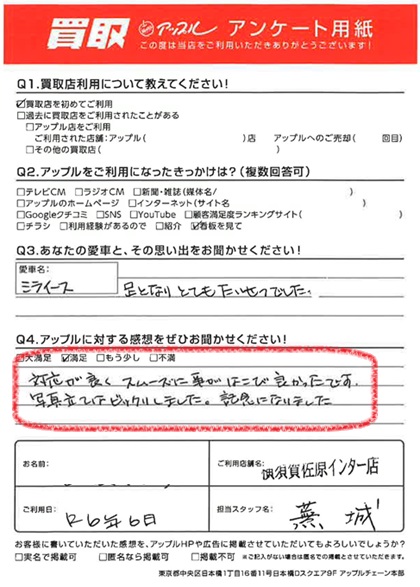 買取 アップル アンケート用紙
この度は当店をご利用いただきありがとうございます!
Q1.買取店利用について教えてください!
☑買取店を初めてご利用
□過去に買取店をご利用されたことがある
□アップル店をご利用
ご利用された店舗:アップル( )店 アップルへのご売却( 回目)
□その他の買取店( )
Q2.アップルをご利用になったきっかけは?(複数回答可)
□テレビCM □ラジオCM □新聞・雑誌(媒体名/ )
□アップルのホームページ □インターネット(サイト名 )
□Googleクチコミ □SNS □YouTube □顧客満足度ランキングサイト( )
□チラシ □利用経験があるので □紹介 ☑看板を見て
Q3.あなたの愛車と、その思い出をお聞かせください!
愛車名:
ミライース 足となり とても たいせつでした。
Q4.アップルに対する感想をぜひお聞かせください!
□大満足 ☑満足 □もう少し □不満
対応が良く スムーズに事がはこび良かったです。
写真立てはビックリしました。記念になりました
お名前:
ご利用店舗名:
横須賀佐原インター店
ご利用日: R6年6日
担当スタッフ名: 城
お客様に書いていただいた感想を、アップルHPや広告に掲載させていただいてもよろしいでしょうか?
□実名で掲載可 □匿名なら掲載可 □掲載不可 ※ご記入がない場合は匿名での掲載とさせていただきます。
東京都中央区日本橋1丁目16番11号日本橋Dスクエア9F アップルチェーン本部